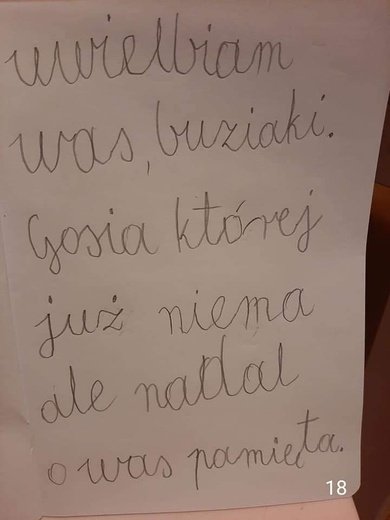 uwielbiam
was, buziaki.
Gosia której
już niema
ale nadal
o was pamięta.
18